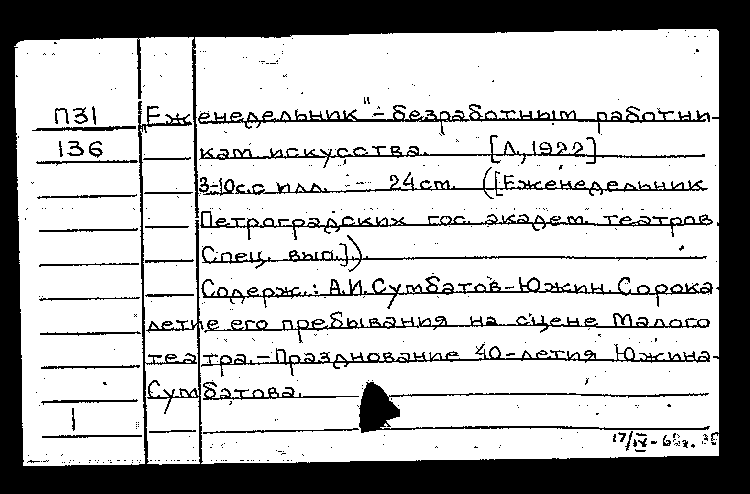 П31 "Еженедельник" - безработным работни-
136 кам искусства. [Л., 1922]
3-10с.с илл. - 24ст. ([Еженедельник
Петроградских гос. академ. театров.
Спец. вып.]).
Содерж.: А.И. Сумбатов-Южин. Сорока-
летие его пребывания на сцене Малого
театра.-Празднование 40-летия Южина-
Сумбатова.
1
17/IV-